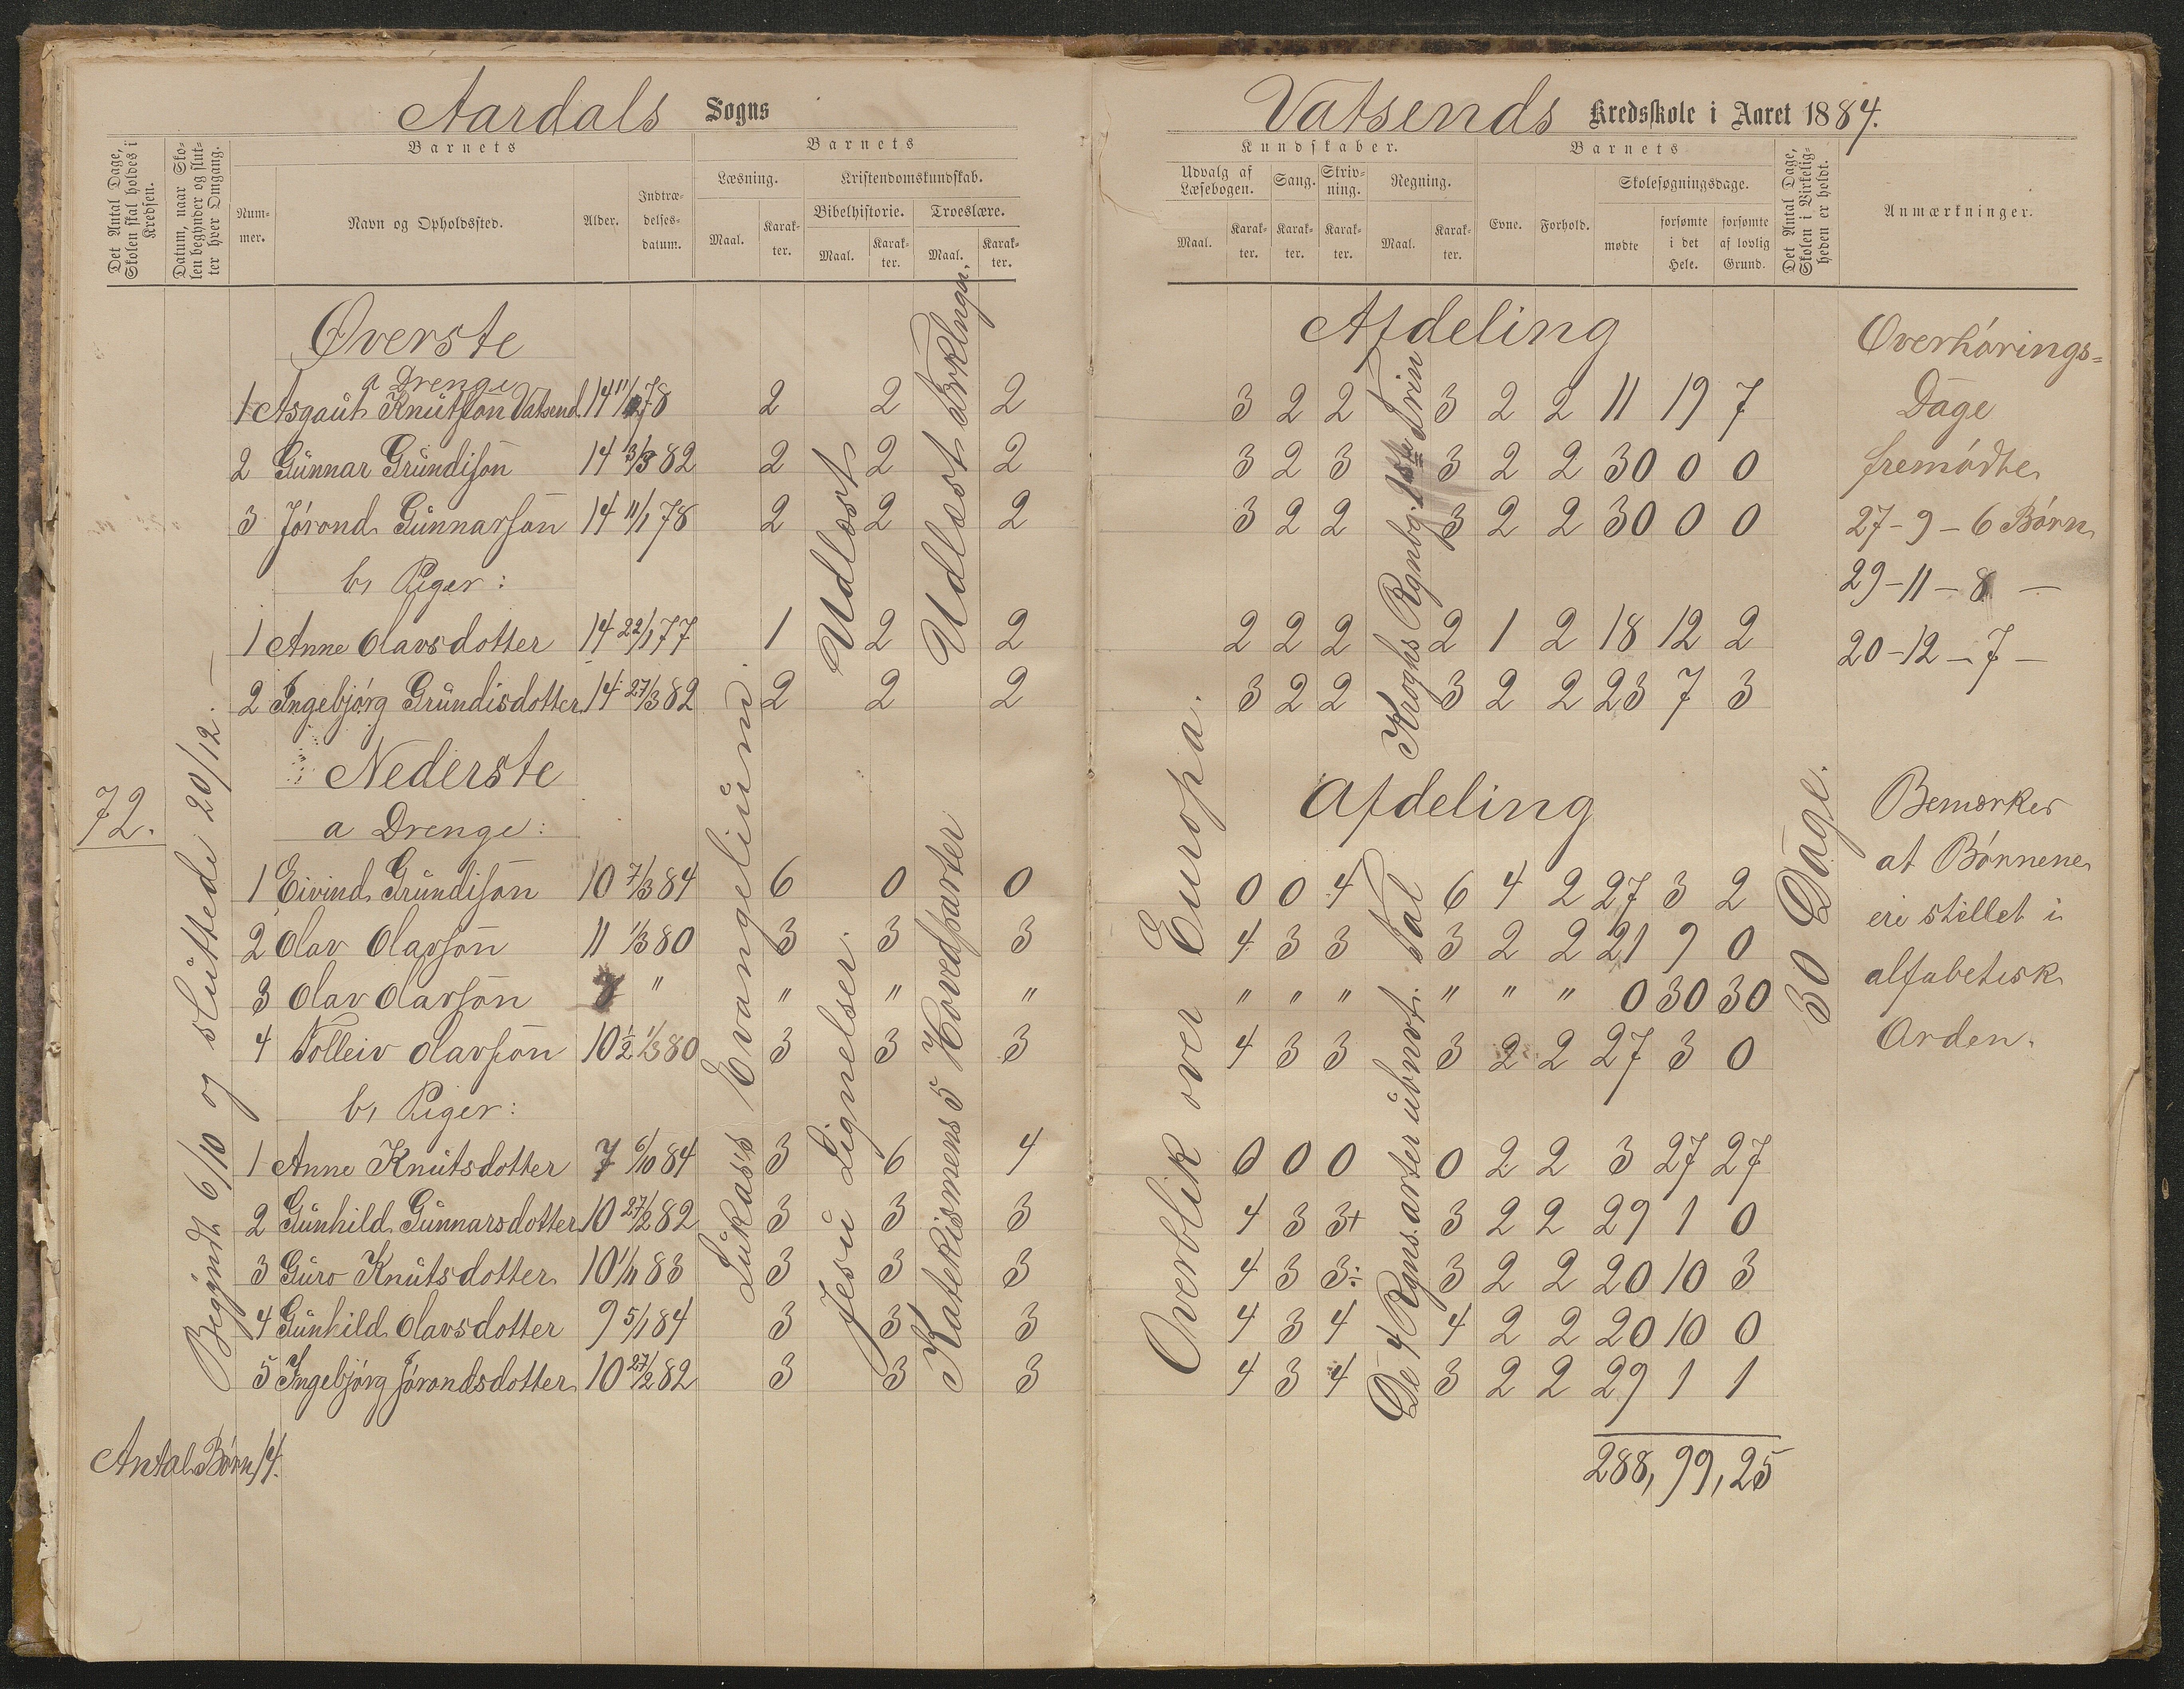 Aardals Sogns
Det Antal Dage, Skolen skal holdes i Kredsen.
Datum, naar Skolen begynder og slutter hver Omgang.
Barnets
Num-mer.
Navn og Opholdssted.
Alder.
Indtræ-delses-datum.
Barnets
Læsning.
Maal.
Karak-ter.
Kristendomskundskab.
Bibelhistorie.
Maal.
Karak-ter.
Troeslære.
Maal.
Karak-ter.
72.
Begyndt 6/10 og sluttede 20/12.
Øverste
a Drenge
1 Asgaut Knutson Vatsend 14 11/1 78 2 2 2
2 Gunnar Grundison 14 13/3 82 2 2 2
3 Jórond Gunnarson 14 11/1 78 2 2 2
b, Piger:
1 Anne Olavsdotter 14 22/1 77 1 2 2
2 Ingebjórg Grundisdotter 14 27/3 82 2 2 2
Udlæst
Udlæst Frklngn.
Nederste
a Drenge:
1 Eivind Grundison 10 7/3 84 6 0 0
2 Olav Olavson 11 1/3 80 3 3 3
3 Olav Olavson 7 " " " "
4 Tolleiv Olavson 10½ 1/3 80 3 3 3
b, Piger:
1 Anne Knutsdotter 7 6/10 84 3 6 4
2 Gunhild Gunnarsdotter 10 27/2 82 3 3 3
3 Guro Knutsdotter 10 1/11 83 3 3 3
4 Gunhild Olavsdotter 9 5/1 84 3 3 3
5 Ingebjórg Jórondsdotter 10 27/2 82 3 3 3
Lukas's Evangelium
Jesu Lignelser.
Katekismens 5 Hovedparter
Antal Børn 14.
Vatsends Kredsskole i Aaret 1884.
Kundskaber.
Udvalg af Læsebogen.
Maal.
Karak-ter.
Sang.
Karak-ter.
Skriv-ning.
Karak-ter.
Regning.
Maal.
Karak-ter.
Barnets
Evne.
Forhold.
Skolesøgningsdage.
mødte
forsømte i det Hele.
forsømte af lovlig Grund.
Det Antal Dage, Skolen i Virkelig-heden er holdt.
Anmærkninger.
Afdeling
3 2 2 3 2 2 11 19 7
3 2 3 3 2 2 30 0 0
3 2 2 3 2 2 30 0 0
2 2 2 2 1 2 18 12 2
3 2 2 3 2 2 23 7 3
Kroghs Rgnbog. 1ste Trin
Afdeling
0 0 4 6 4 2 27 3 2
4 3 3 3 2 2 21 9 0
" " " " " " 0 30 30
4 3 3 3 2 2 27 3 0
0 0 0 0 2 2 3 27 27
4 3 3+ 3 2 2 29 1 0
4 3 3÷ 3 2 2 20 10 3
4 3 4 4 2 2 20 10 0
4 3 4 3 2 2 29 1 1
Overblik over Europa.
De 4 Rgns. arter i ubnvt. Tal
30 Dage.
288, 99, 25
Overhórings=
Dage
fremódte
27-9-6 Bórn
29-11-8 —
20-12-7 —
Bemærkes
at Bórnene
ere stillet i
alfabetisk
Orden.